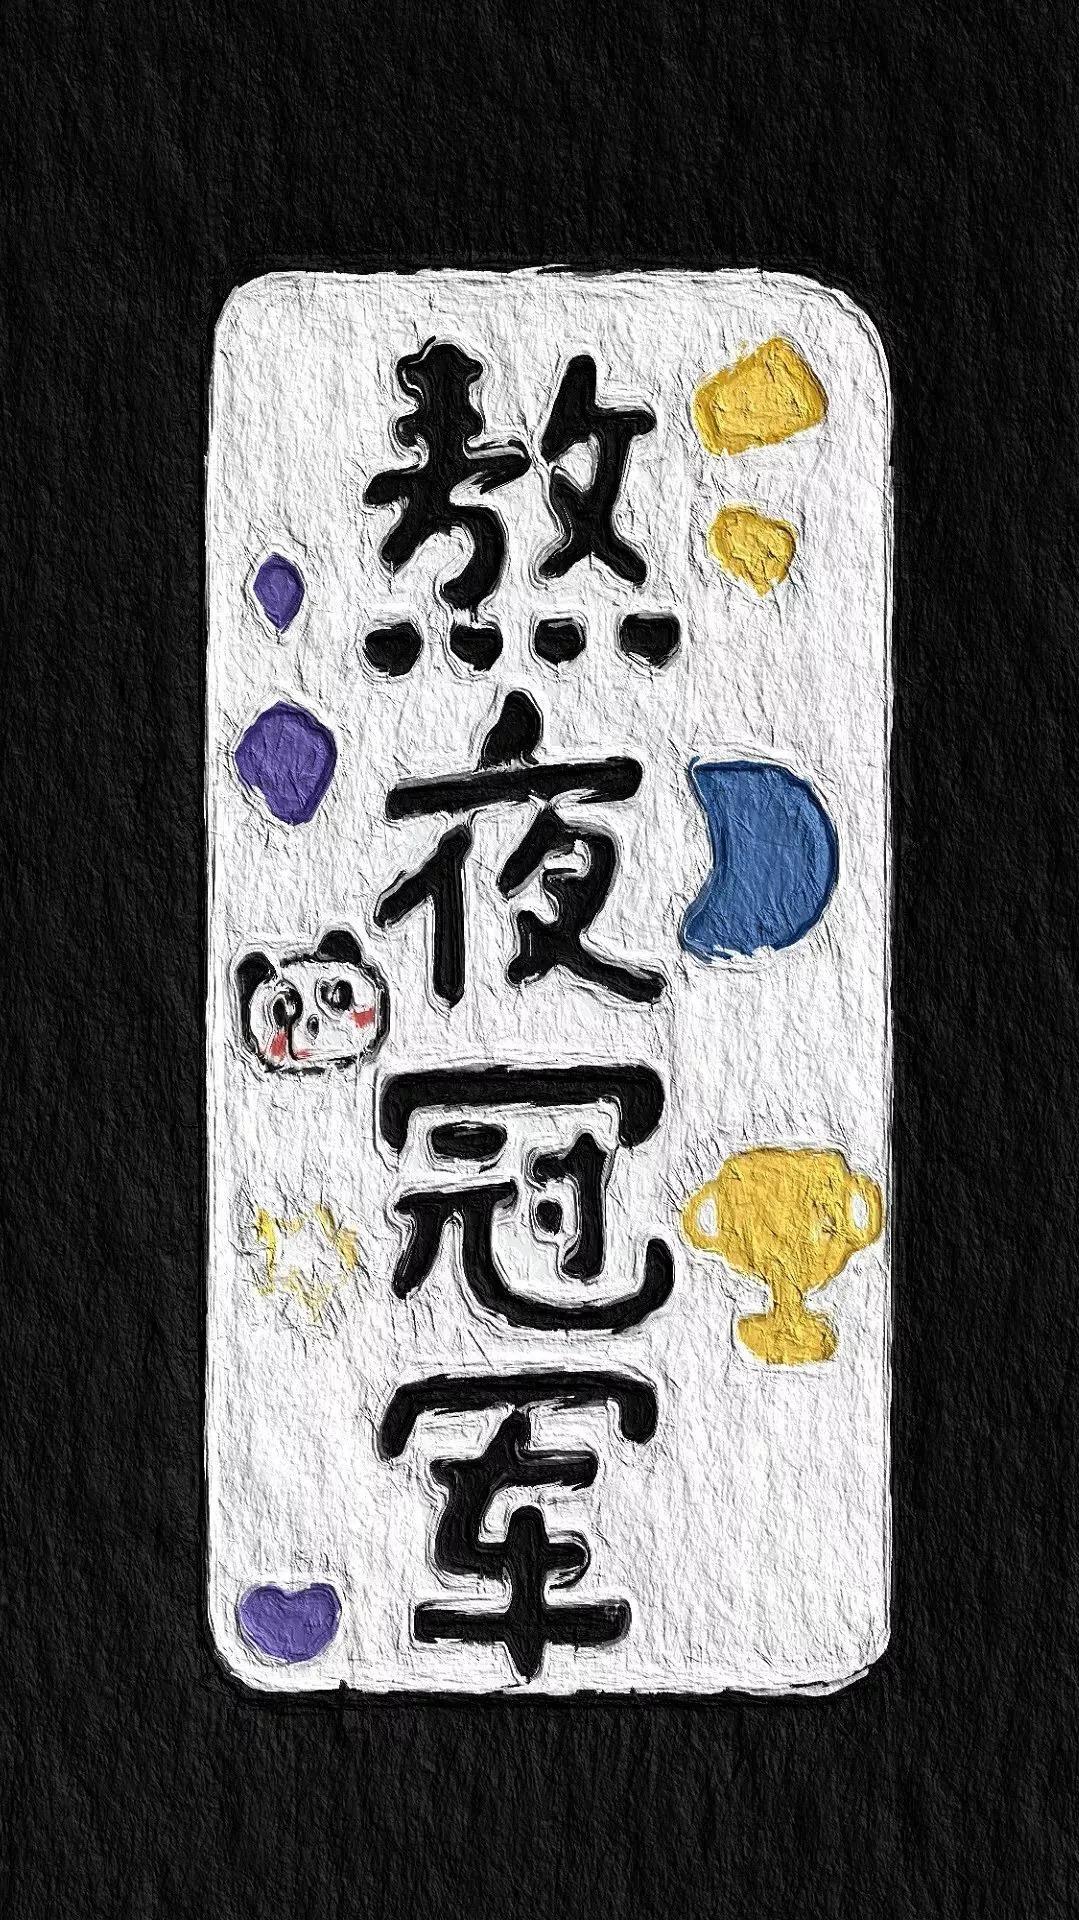 熬夜冠军